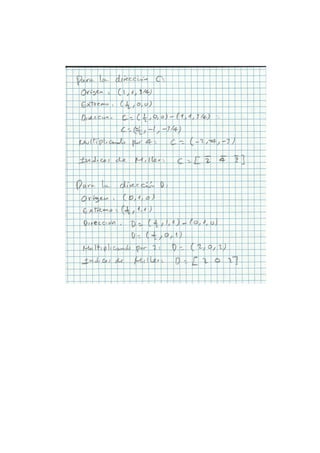 Para la dirección C:
Origen: (1,1,3/4)
Extremo: (½,0,0)
Dirección. C=(½,0,0)-(1,1,3/4)
C=(-½,-1,-3/4)
Multiplicando por 4: C=(-2,-4,-3)
Indices de Miller: C=[2̄ 4̄ 3̄]
Para la dirección D:
Origen: (0,1,0)
Extremo: (½,1,1)
Dirección. D=(½,1,1)-(0,1,0)
D=(½,0,1)
Multiplicando por 2: D=
Indices de Miller: D=